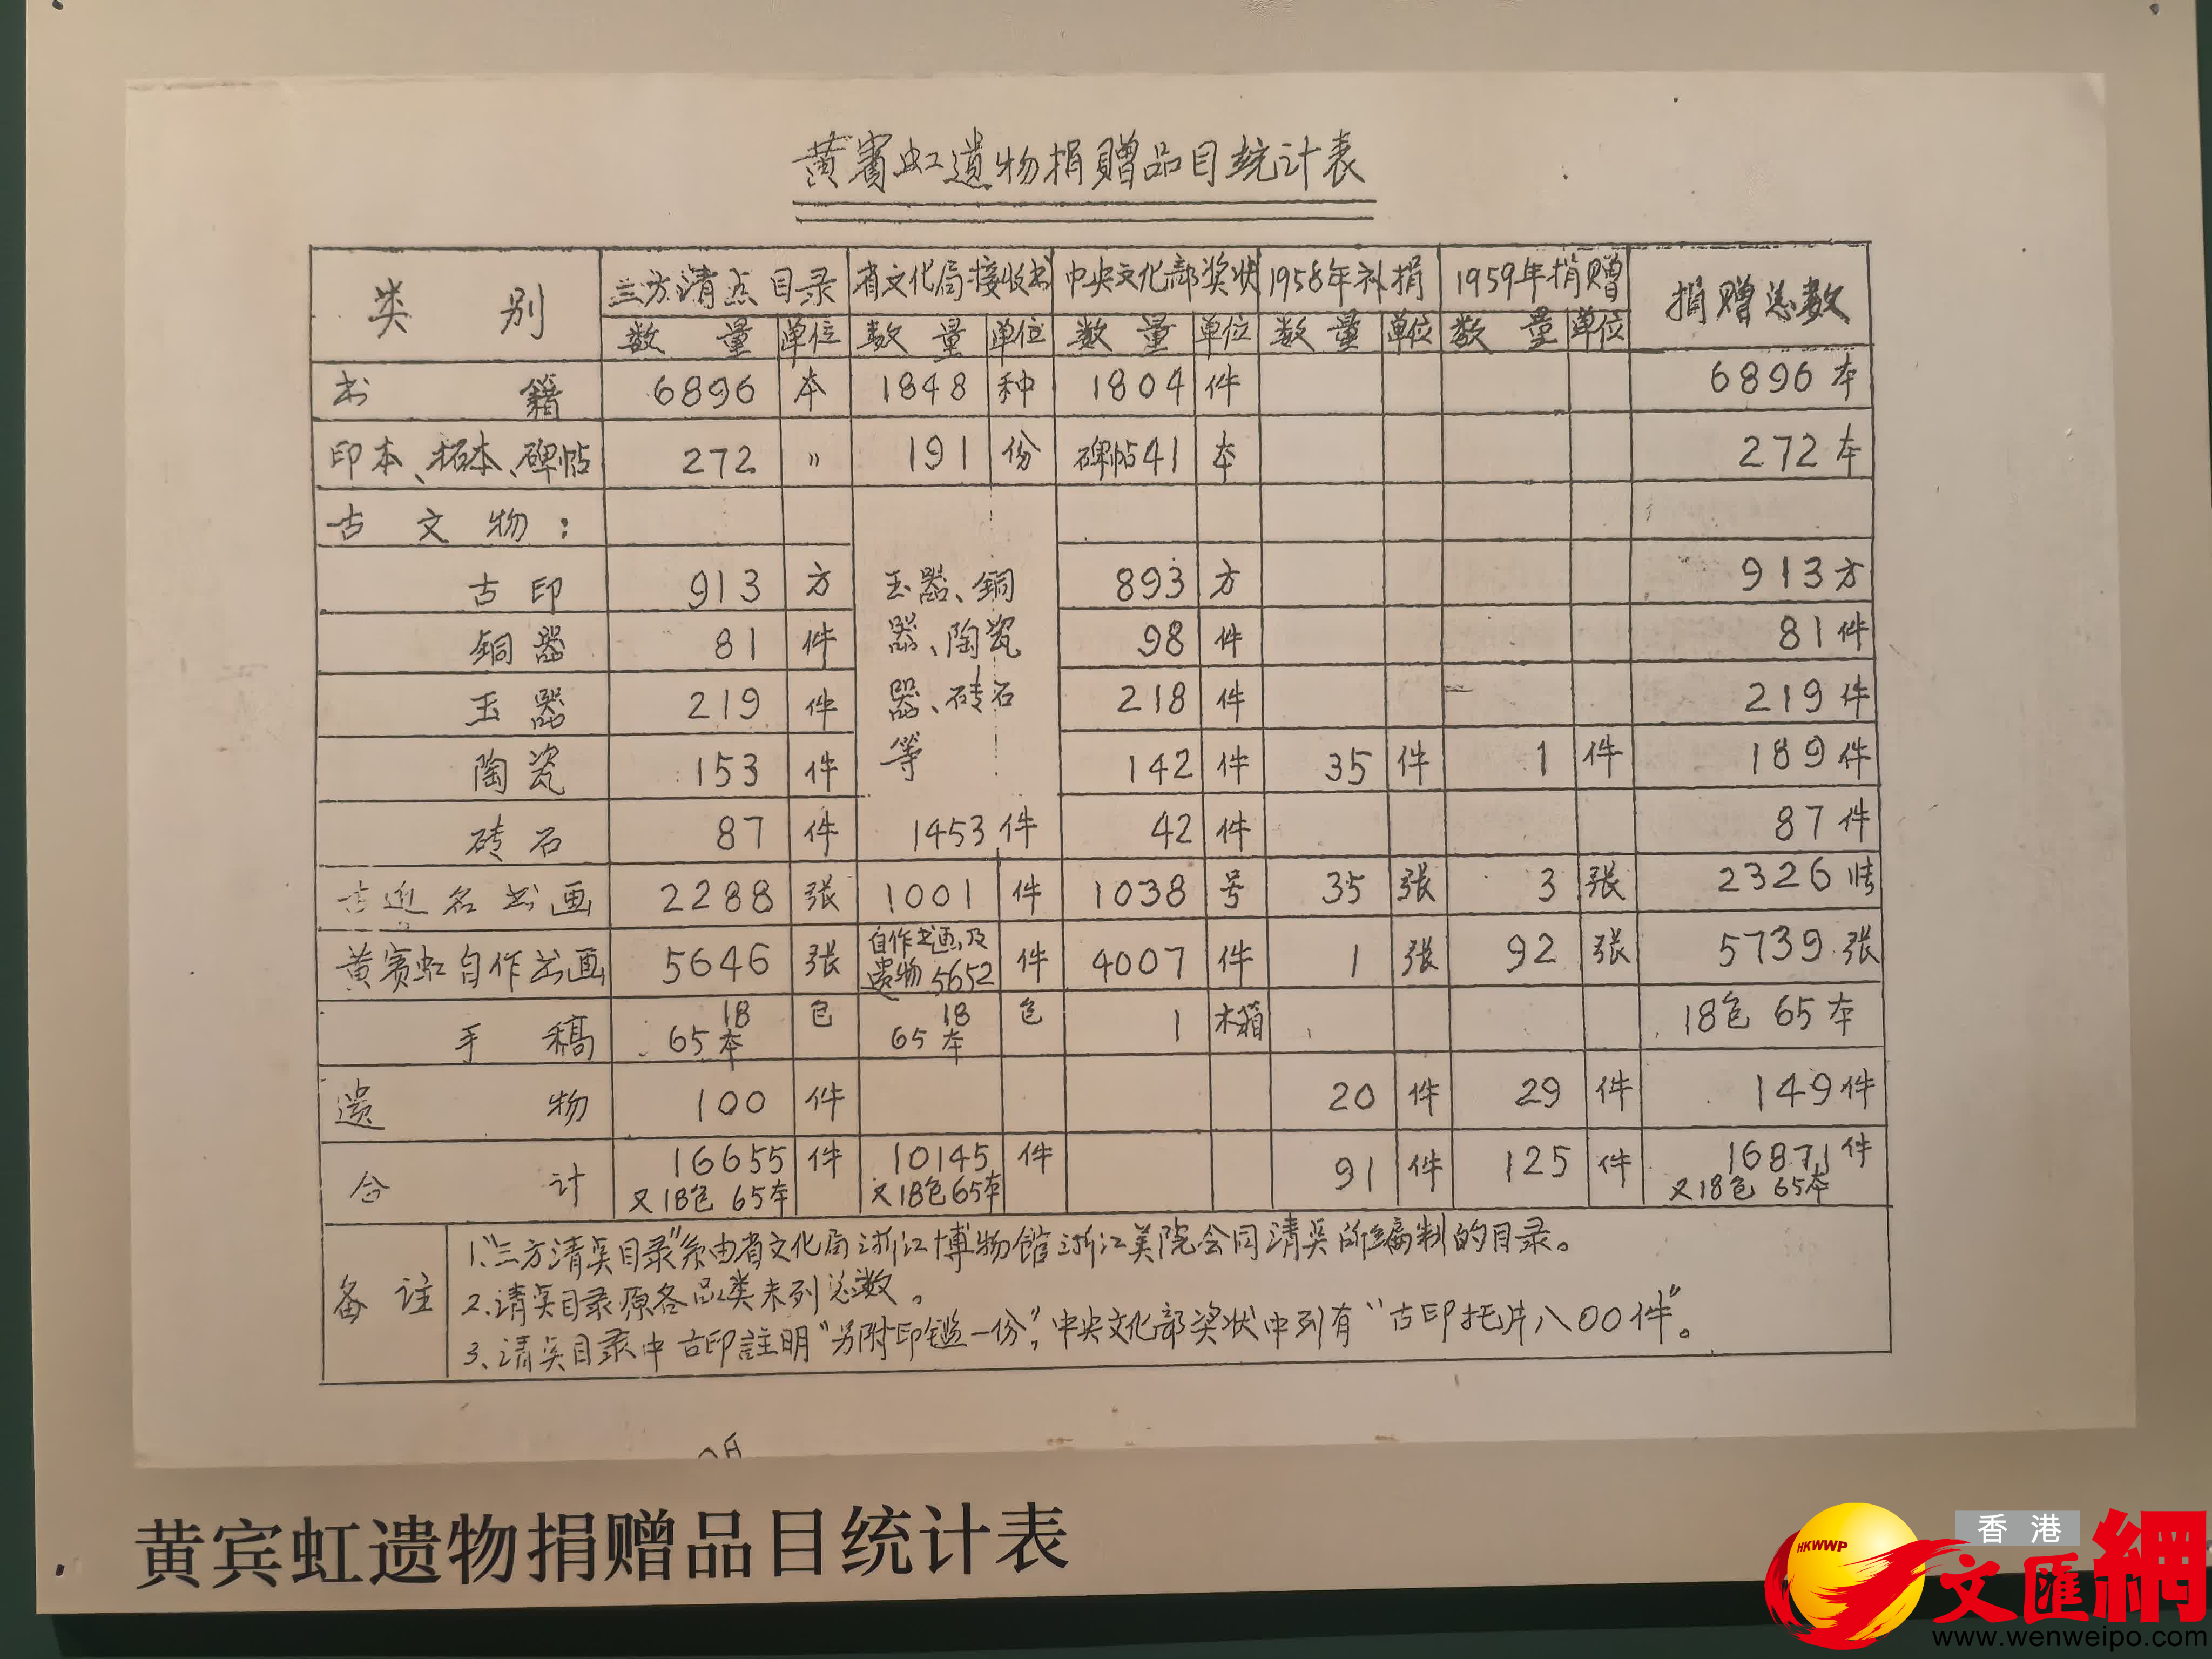 黄賓虹遺物捐赠品目统计表
类 别 三方清点目录 省文化局接收书 中央文化部奖状 1958年补捐 1959年捐赠 捐赠总数
数 量 单位 数 量 单位 数 量 单位 数 量 单位 数 量 单位
书 籍 6896 本 1848 种 1804 件 6896本
印本、拓本、碑帖 272 〃 191 份 碑帖541 本 272本
古 文 物：
古 印 913 方 玉器、銅 893 方 913方
銅 器 81 件 器、陶瓷 98 件 81件
玉 器 219 件 器、砖石 218 件 219件
陶 瓷 153 件 等 142 件 35 件 1 件 189件
砖 石 87 件 1453件 42 件 87件
古近名书画 2288 张 1001 件 1038 号 35 张 3 张 2326张
黄宾虹自作书画 5646 张 自作书画及遗物5652 件 4007 件 1 张 92 张 5739张
手 稿 18 包 65本 18 包 65本 1 木箱 18包 65本
遗 物 100 件 20 件 29 件 149件
合 计 16655 件 10145 件 91 件 125 件 16871件
又18包 65本 又18包65本 又18包 65本
备 注
1.“三方清点目录”系由省文化局浙江博物館浙江美院会同清点所编制的目录。
2.清点目录原各品类未列总数。
3.清点目录中古印註明“另附印鑑一份”，中央文化部奖状中列有“古印托片八00件”。
黄宾虹遗物捐赠品目统计表
HKWWP
香港
文匯網
www.wenweipo.com